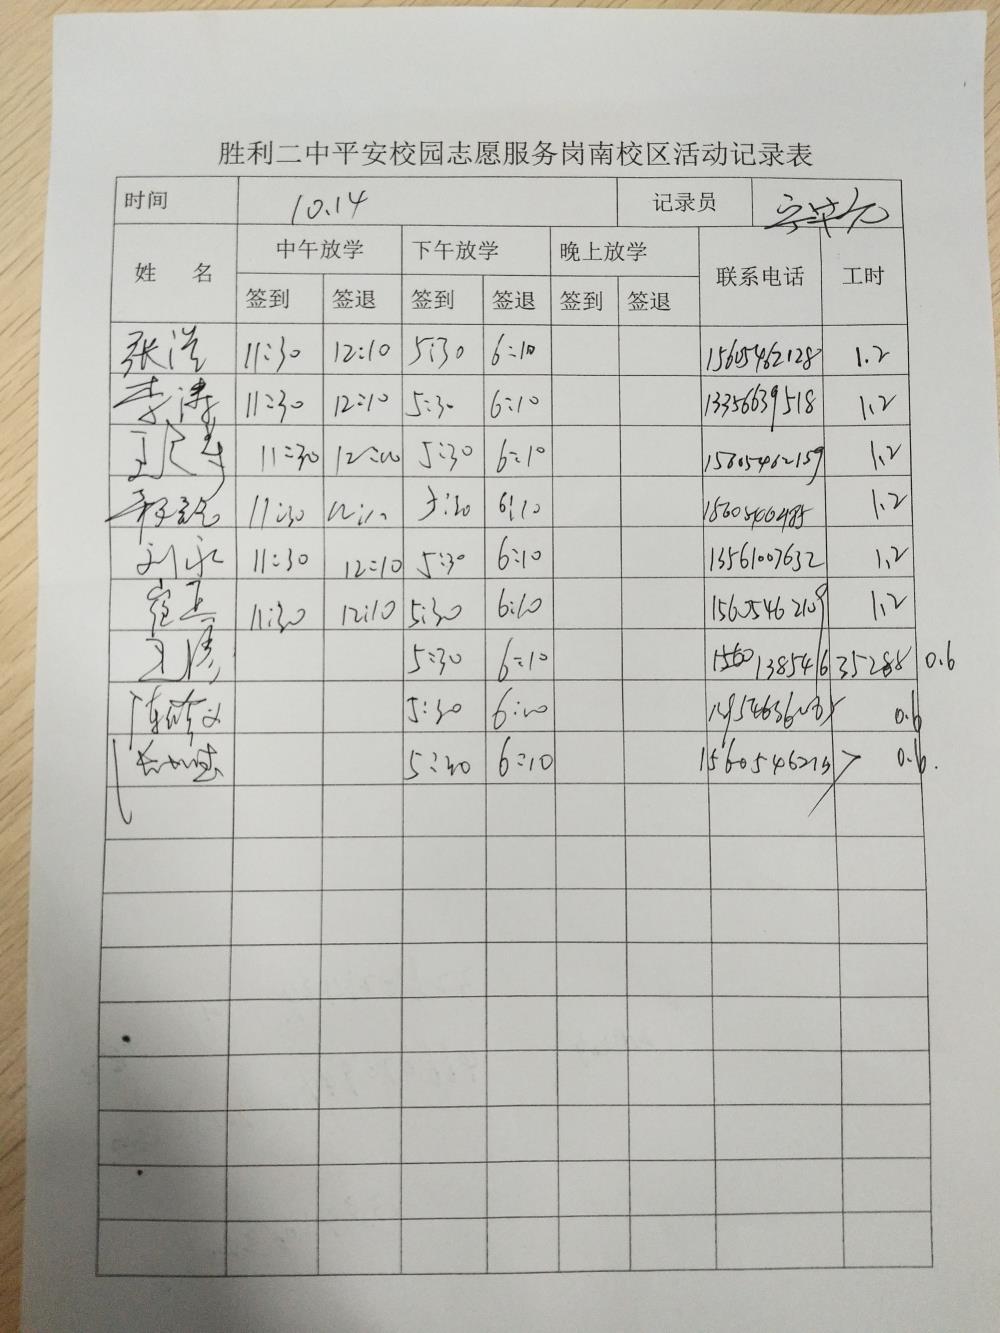 胜利二中平安校园志愿服务岗南校区活动记录表
时间 10.14 记录员
姓 名 中午放学 下午放学 晚上放学 联系电话 工时
签到 签退 签到 签退 签到 签退
张洪 11:30 12:10 5:30 6:10 15605462128 1.2
李涛 11:30 12:10 5:30 6:10 13356639518 1.2
11:30 12:00 5:30 6:10 15605462159 1.2
11:30 5:30 6:10 1.2
刘永 11:30 12:10 5:30 6:10 13561007632 1.2
崔正 11:30 12:10 5:30 6:10 15605462109 1.2
王涛 5:30 6:10 13854635288 0.6
5:30 6:10 0.6
5:30 6:10 0.6.